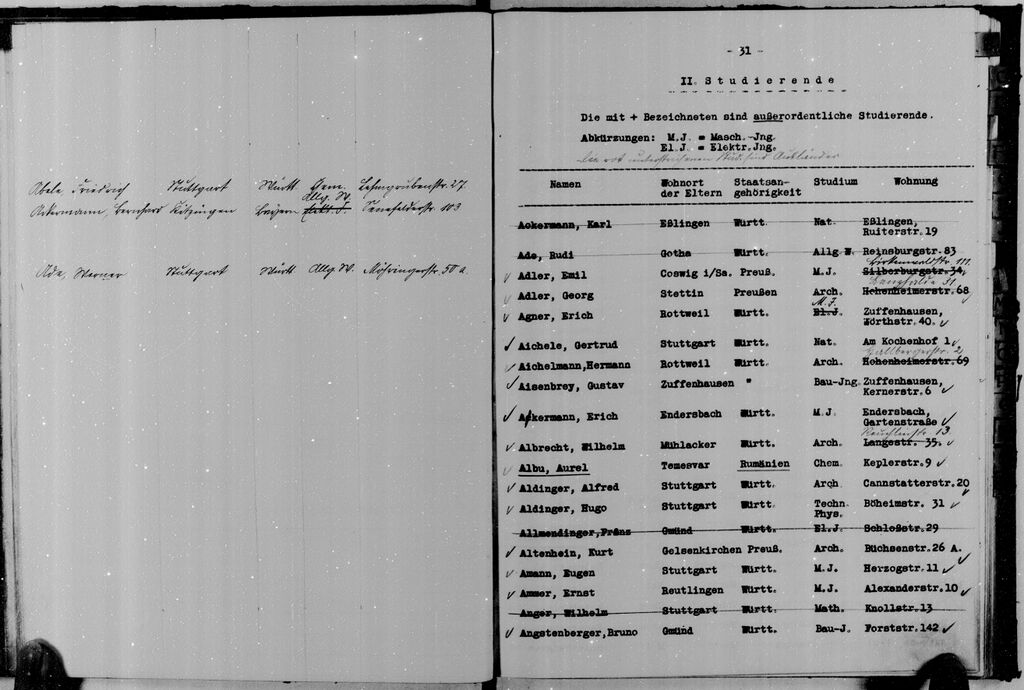 Abele Friedrich Stuttgart Württ. Gem. Lehmgrubenstr. 27
Allg. W.
Ackermann, Bernhard Kitzingen Bayern Elekt. J. Senefelderstr. 103
Ade, Werner Stuttgart Württ. Allg. W. Möhringerstr. 50 a
- 31 -
II. Studierende
Die mit + Bezeichneten sind außerordentliche Studierende.
Abkürzungen: M.J. = Masch.-Jng.
El.J. = Elektr.Jng.
Die rot unterstrichenen Stud. sind Ausländer
Namen Wohnort der Eltern Staatsangehörigkeit Studium Wohnung
Ackermann, Karl Eßlingen Württ. Nat. Eßlingen,
Ruiterstr. 19
Ade, Rudi Gotha Württ. Allg W. Reinsburgstr. 83
Birkenwaldstr. 111.
Adler, Emil Coswig i/Sa. Preuß. M.J. Silberburgstr. 34,
Adler, Georg Stettin Preußen Arch. Hohenheimerstr. 68
M.J.
Agner, Erich Rottweil Württ. El.J. Zuffenhausen,
Wörthstr. 40.
Aichele, Gertrud Stuttgart Württ. Nat. Am Kochenhof 1
Aichelmann, Hermann Rottweil Württ. Arch. Hohenheimerstr. 69
Aisenbrey, Gustav Zuffenhausen " Bau-Jng. Zuffenhausen,
Kernerstr. 6
Akermann, Erich Endersbach Württ. M.J. Endersbach,
Gartenstraße
Reuchlinstr. 13
Albrecht, Wilhelm Mühlacker Württ. Arch. Langestr. 35.
Albu, Aurel Temesvar Rumänien Chem. Keplerstr. 9
Aldinger, Alfred Stuttgart Württ. Arch. Cannstatterstr. 20
Aldinger, Hugo Stuttgart Württ. Techn. Böheimstr. 31
Phys.
Allmendinger, Franz Gmünd Württ. El.J. Schloßstr. 29
Altenhein, Kurt Gelsenkirchen Preuß. Arch. Büchsenstr. 26 A.
Amann, Eugen Stuttgart Württ. M.J. Herzogstr. 11
Ammer, Ernst Reutlingen Württ. M.J. Alexanderstr. 10
Anger, Wilhelm Stuttgart Württ. Math. Knollstr. 13
Angstenberger, Bruno Gmünd Württ. Bau-J. Forststr. 142